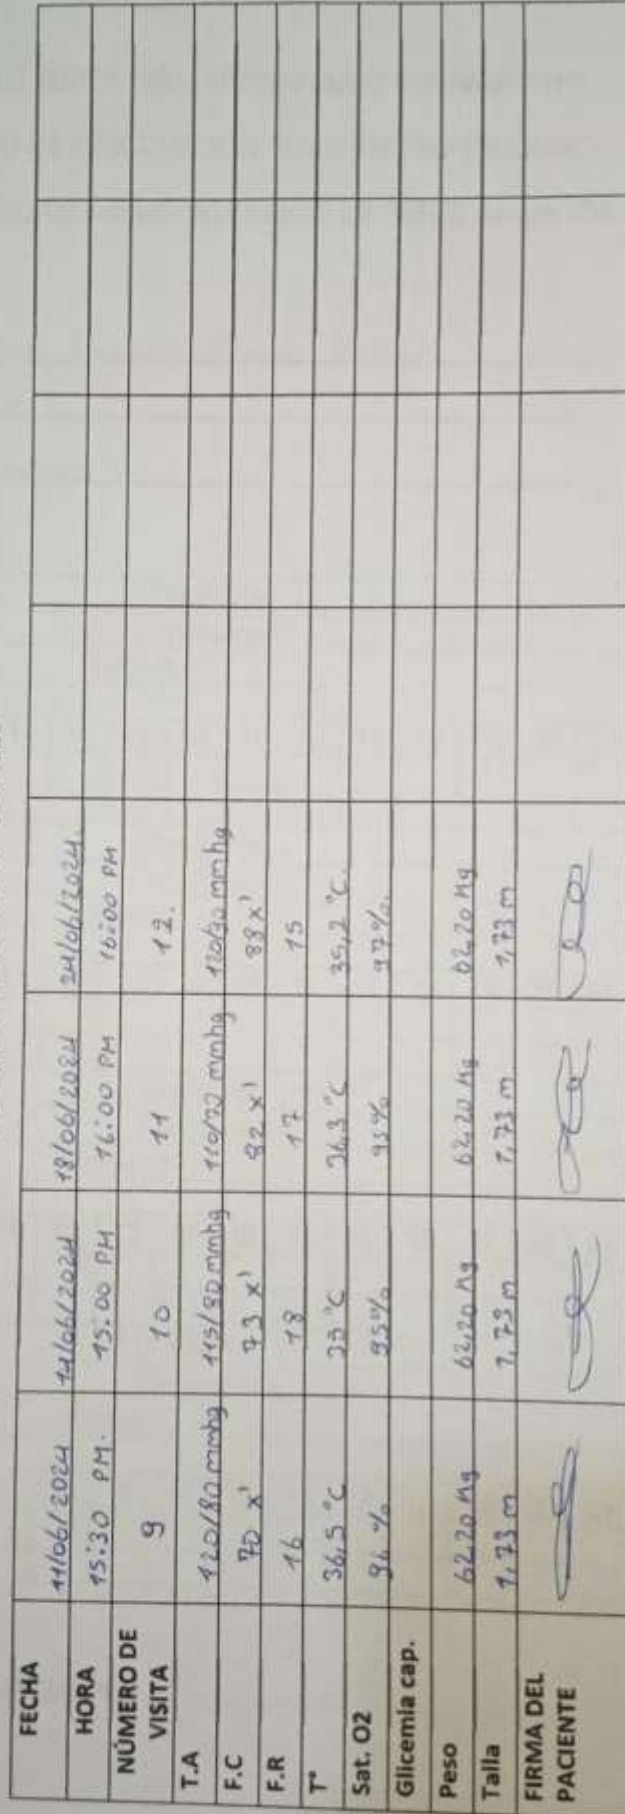 FECHA 11/06/2024 14/06/2024 18/06/2024 24/06/2024.
HORA 15:30 PM. 15:00 PM 16:00 PM 16:00 PM
NÚMERO DE VISITA 9 10 11 12.
T.A 120/80 mmhg 115/80 mmhg 110/70 mmhg mmhg
F.C 70 x' 73 x' x' x'
F.R 16 18 17 15
T° 36,5 °C °C 36,3 °C °C.
Sat. O2 95% 97%.
Glicemia cap.
Peso 62,20 Kg 62,20 Kg 62,20 Kg 62,20 Kg
Talla 1,73 m 1,73 m 1,73 m 1,73 m
FIRMA DEL PACIENTE